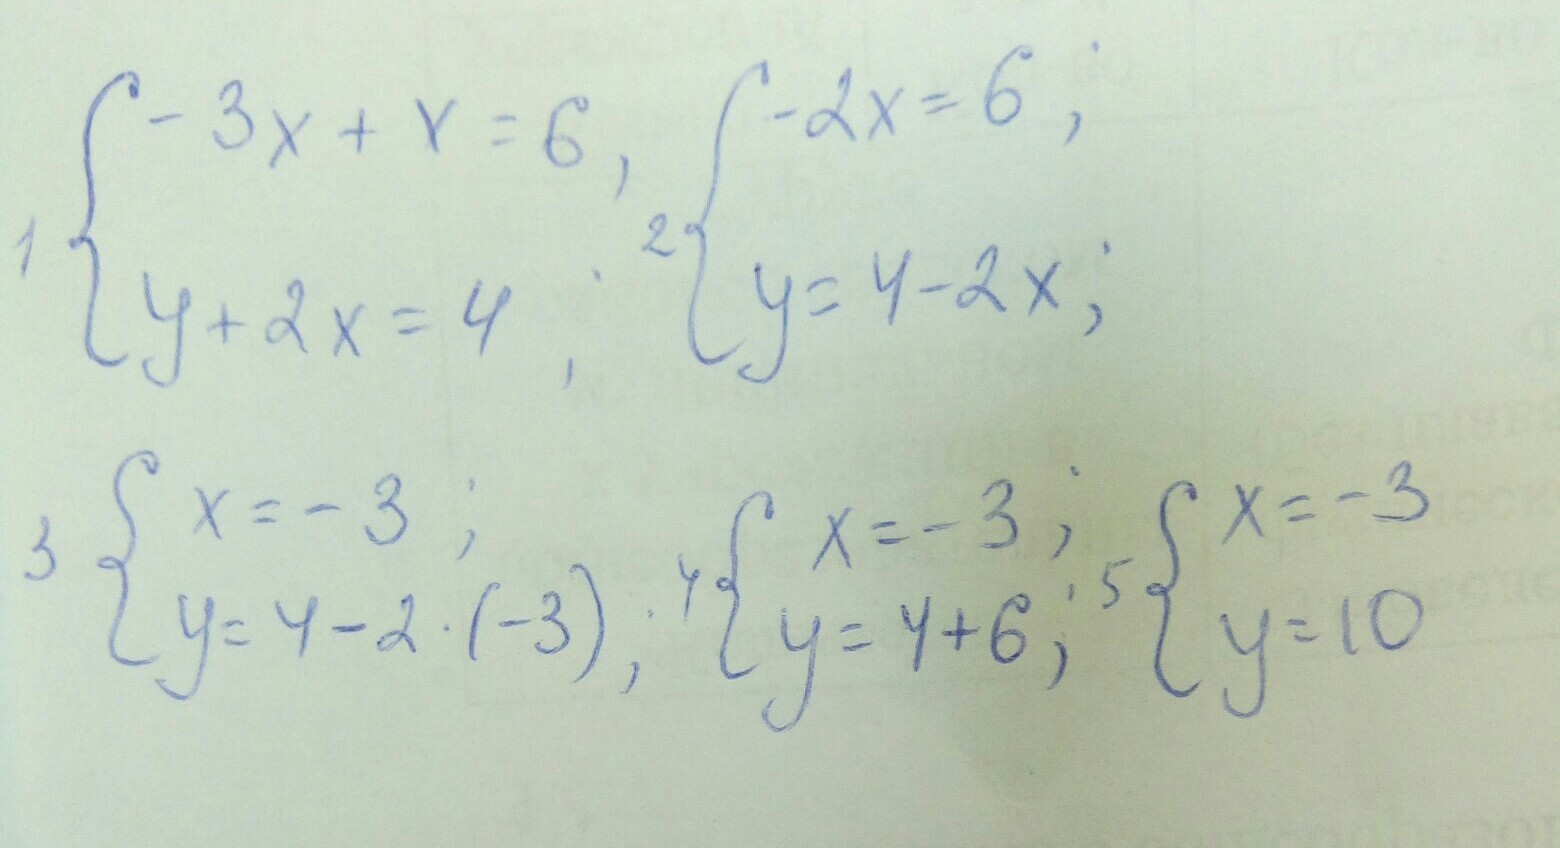 1 { -3x + x = 6, y + 2x = 4;
2 { -2x = 6; y = 4 - 2x;
3 { x = -3; y = 4 - 2 · (-3);
4 { x = -3; y = 4 + 6;
5 { x = -3 y = 10